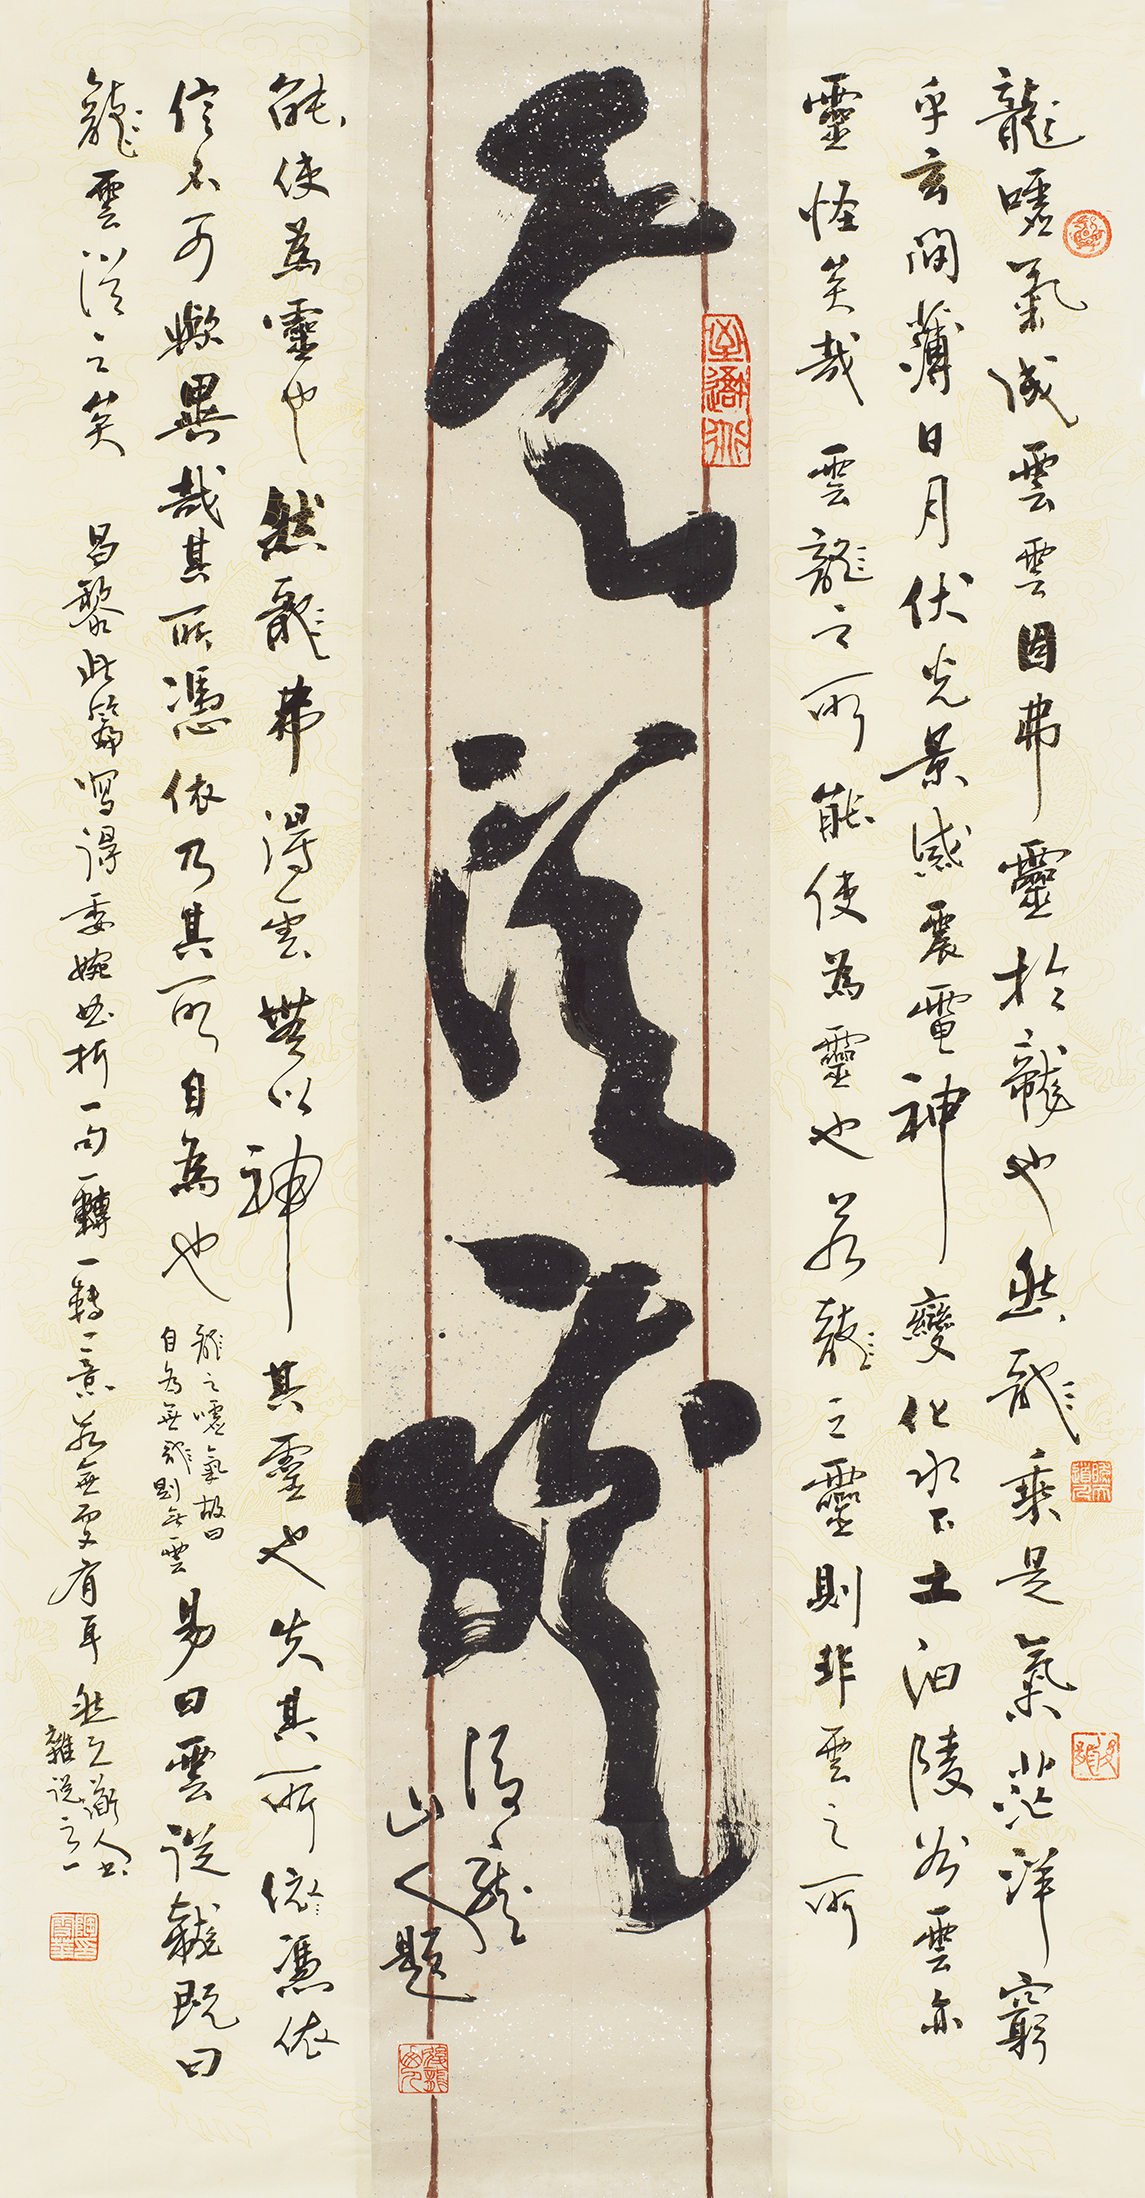 龍噓氣成雲雲固弗靈於龍也然龍乘是氣茫洋窮
乎玄間薄日月伏光景感震電神變化水下土汩陵谷雲亦
靈怪矣哉雲龍之所能使為靈也若龍之靈則非雲之所
雲從龍
後龍
山人題
能使為靈也然龍弗得雲無以神其靈也失其所依憑依
信不可歟異哉其所憑依乃其所自為也
龍之噓氣故曰
自為無龍則無雲
易曰雲從龍既曰
龍雲從之矣 昌黎此篇寫得委婉曲折一句一轉一轉一意若無更有耳
雜說之一